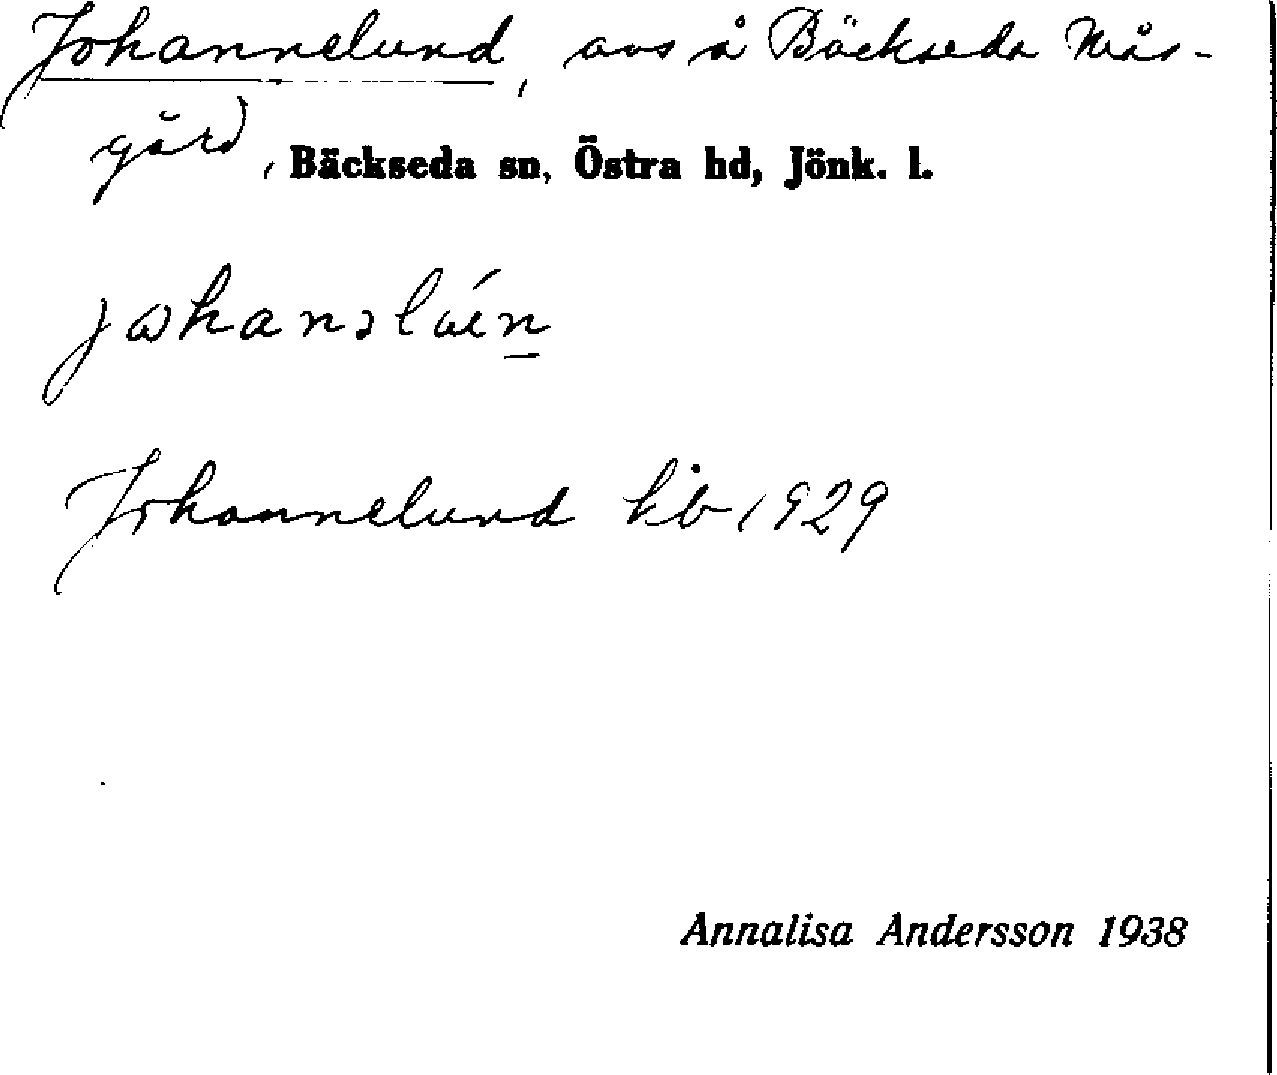 Johannelund, avs å Bäckseda Näs-
gård, Bäckseda sn, Östra hd, Jönk. l.
Johannelund kb 1929
Annalisa Andersson 1938